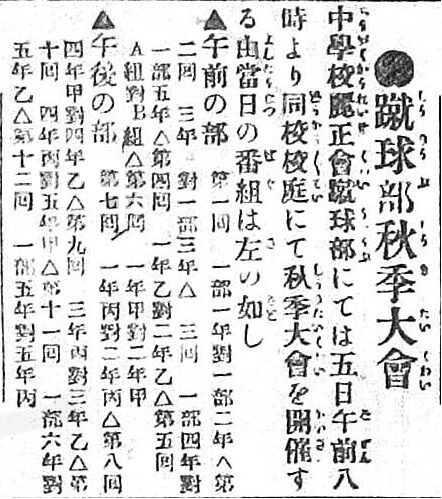 ●蹴球部秋季大會
中學校麗正會蹴球部にては五日午前八
時より同校校庭にて秋季大會を開催す
る由當日の番組は左の如し
▲午前の部 第一回 一部一年對一部二年△第
二回 三年 對一部三年△ 三回 一部四年對
一部五年△第四回 一年乙對二年乙△第五回
A組對B組△第六回 一年甲對二年甲
▲午後の部 第七回 一年丙對二年丙△第八回
四年甲對四年乙△第九回 三年丙對三年乙△第
十回 四年丙對五年甲△第十一回 一部六年對
五年乙△第十二回 一部五年對五年丙